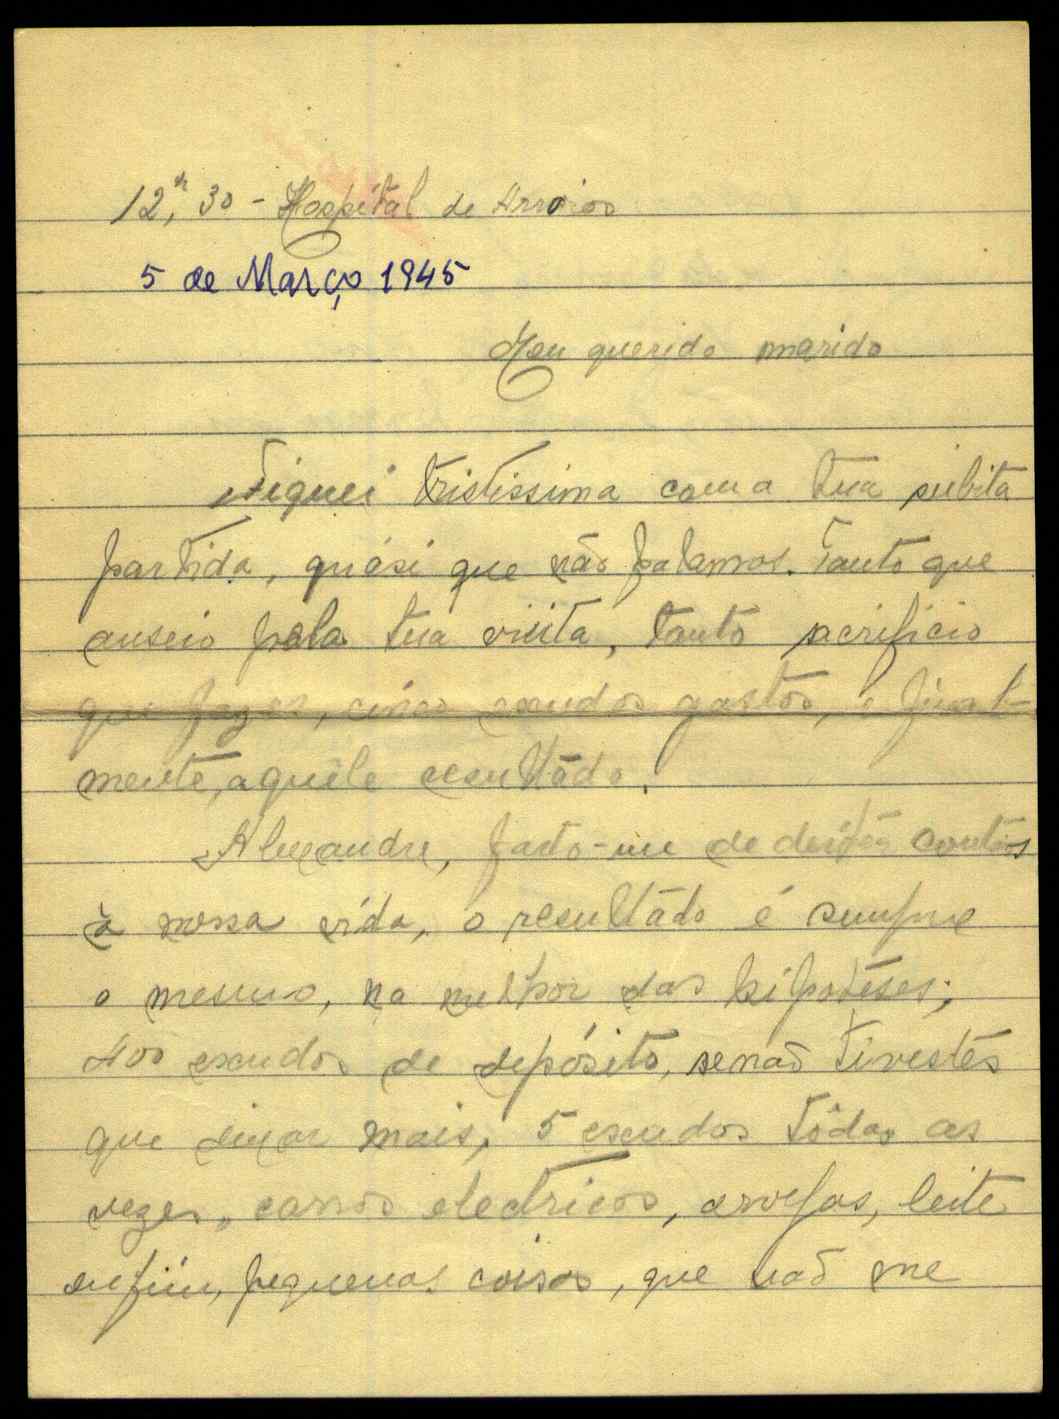 12,h 30 - Hospital de Arroios
5 de Março 1945
Meu querido marido
Fiquei tristissima com a tua subita
partida, quási que não falamos. Tanto que
anseio pela tua visita, tanto sacrificio
que fazes, cinco escudos gastos, e final-
mente, aquele resultado.
Alexandre, farto-me de deitar contas
à nossa vida, o resultado é sempre
o mesmo, na melhor das hipóteses;
400 escudos de depósito, se não tivestes
que deixar mais, 5 escudos tôdas as
vezes, carros electricos, leite
enfim, pequenas coisas, que não me